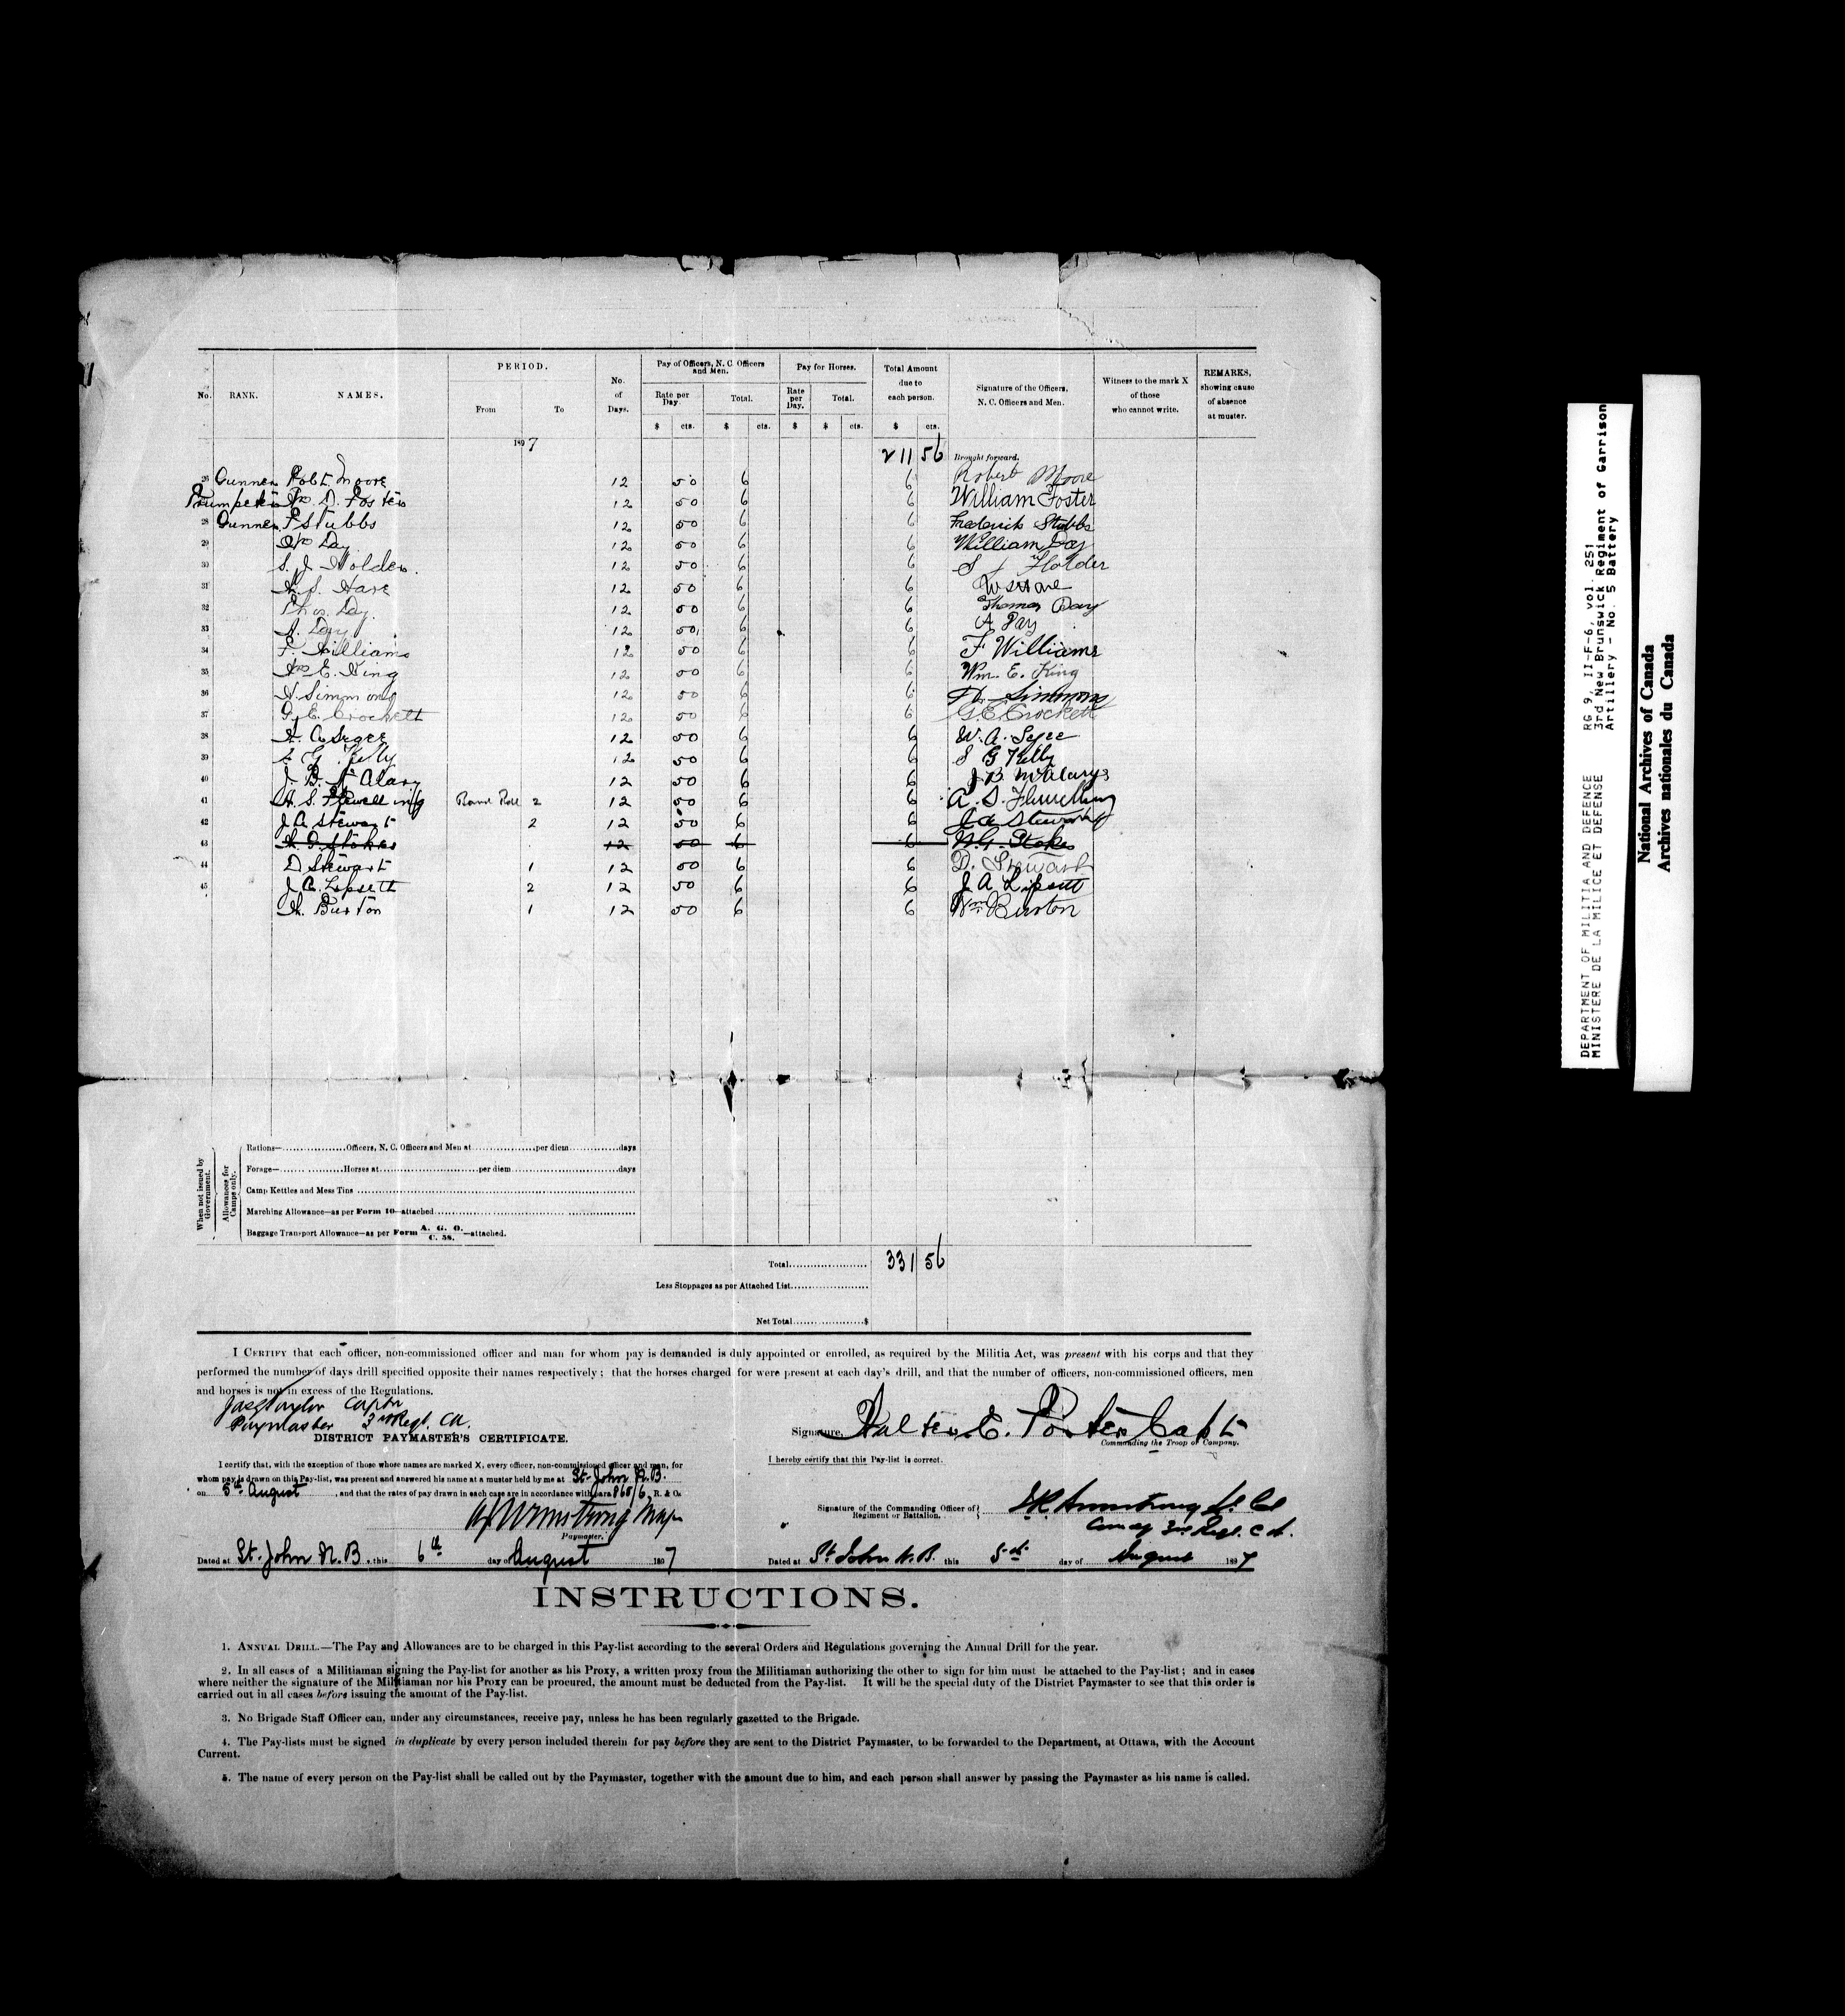 No. RANK. NAMES. PERIOD. No. of Days. Pay of Officers, N. C. Officers and Men. Pay for Horses. Total Amount due to each person. Signature of the Officers, N. C. Officers and Men. Witness to the mark X of those who cannot write. REMARKS, showing cause of absence at muster.
From To Rate per Day. Total. Rate per Day. Total.
$ cts. $ cts. $ $ cts. $ cts.
1897
211 56 Brought forward.
26 Gunner Robt. Moore 12 50 6 6 Robert Moore
Trumpeter Wm D. Foster 12 50 6 6 William Foster
28 Gunner F Stubbs 12 50 6 6 Frederick Stubbs
29 Wm Day 12 50 6 6 William Day
30 S. J. Holder. 12 50 6 6 S J Holder
31 W. S. Hare 12 50 6 6 W S Hare
32 Thos. Day 12 50 6 6 Thomas Day
33 A. Day 12 50 6 6 A Day
34 F. Williams 12 50 6 6 F Williams
35 Wm E. King 12 50 6 6 Wm. E. King
36 H. Simmons 12 50 6 6 H. Simmons
37 G. E. Crockett 12 50 6 6 G. E. Crockett
38 W. A. Segee 12 50 6 6 W. A. Segee
39 S. G. Kelly 12 50 6 6 S G Kelly
40 J. B. McAlary 12 50 6 6 J B McAlary
41 A. S. Flewelling Band Roll 2 12 50 6 6 A. S. Flewelling
42 J A Stewart 2 12 50 6 6 J A Stewart
43 Stokes 12 50 6 6 Stokes
44 D Stewart 1 12 50 6 6 D. Stewart
45 J A. Lipsett 2 12 50 6 6 J A Lipsett
W. Burton 1 12 50 6 6 Wm Burton
When not issued by Government. Allowances for Camps only.
Rations—..................Officers, N. C. Officers and Men at..................per diem..............days
Forage—..................Horses at..................per diem..................days
Camp Kettles and Mess Tins
Marching Allowance—as per Form 10—attached
Baggage Transport Allowance—as per Form A. G. O. C. 58.—attached.
Total 331 56
Less Stoppages as per Attached List
Net Total $
I CERTIFY that each officer, non-commissioned officer and man for whom pay is demanded is duly appointed or enrolled, as required by the Militia Act, was present with his corps and that they
performed the number of days drill specified opposite their names respectively; that the horses charged for were present at each day's drill, and that the number of officers, non-commissioned officers, men
and horses is not in excess of the Regulations.
Jas Taylor Captn
Paymaster 3rd Regt. CA.
Signature, Walter E. Foster Capt
Commanding the Troop or Company.
DISTRICT PAYMASTER'S CERTIFICATE.
I hereby certify that this Pay-list is correct.
I certify that, with the exception of those whose names are marked X, every officer, non-commissioned officer and man, for
whom pay is drawn on this Pay-list, was present and answered his name at a muster held by me at St. John N.B.
on 5th August, and that the rates of pay drawn in each case are in accordance with para 868/6, R. & Os.
Armstrong Major
Paymaster.
Signature of the Commanding Officer of Regiment or Battalion. Armstrong Lt Col
Comdg 3rd Regt. C A.
Dated at St. John N.B., this 6th day of August 1897
Dated at St John N.B. this 5th day of August 1897
INSTRUCTIONS.
1. ANNUAL DRILL.—The Pay and Allowances are to be charged in this Pay-list according to the several Orders and Regulations governing the Annual Drill for the year.
2. In all cases of a Militiaman signing the Pay-list for another as his Proxy, a written proxy from the Militiaman authorizing the other to sign for him must be attached to the Pay-list; and in cases
where neither the signature of the Militiaman nor his Proxy can be procured, the amount must be deducted from the Pay-list. It will be the special duty of the District Paymaster to see that this order is
carried out in all cases before issuing the amount of the Pay-list.
3. No Brigade Staff Officer can, under any circumstances, receive pay, unless he has been regularly gazetted to the Brigade.
4. The Pay-lists must be signed in duplicate by every person included therein for pay before they are sent to the District Paymaster, to be forwarded to the Department, at Ottawa, with the Account
Current.
5. The name of every person on the Pay-list shall be called out by the Paymaster, together with the amount due to him, and each person shall answer by passing the Paymaster as his name is called.
DEPARTMENT OF MILITIA AND DEFENCE RG 9, II-F-6, vol. 251
MINISTERE DE LA MILICE ET DEFENSE 3rd New Brunswick Regiment of Garrison
Artillery - No. 5 Battery
National Archives of Canada
Archives nationales du Canada